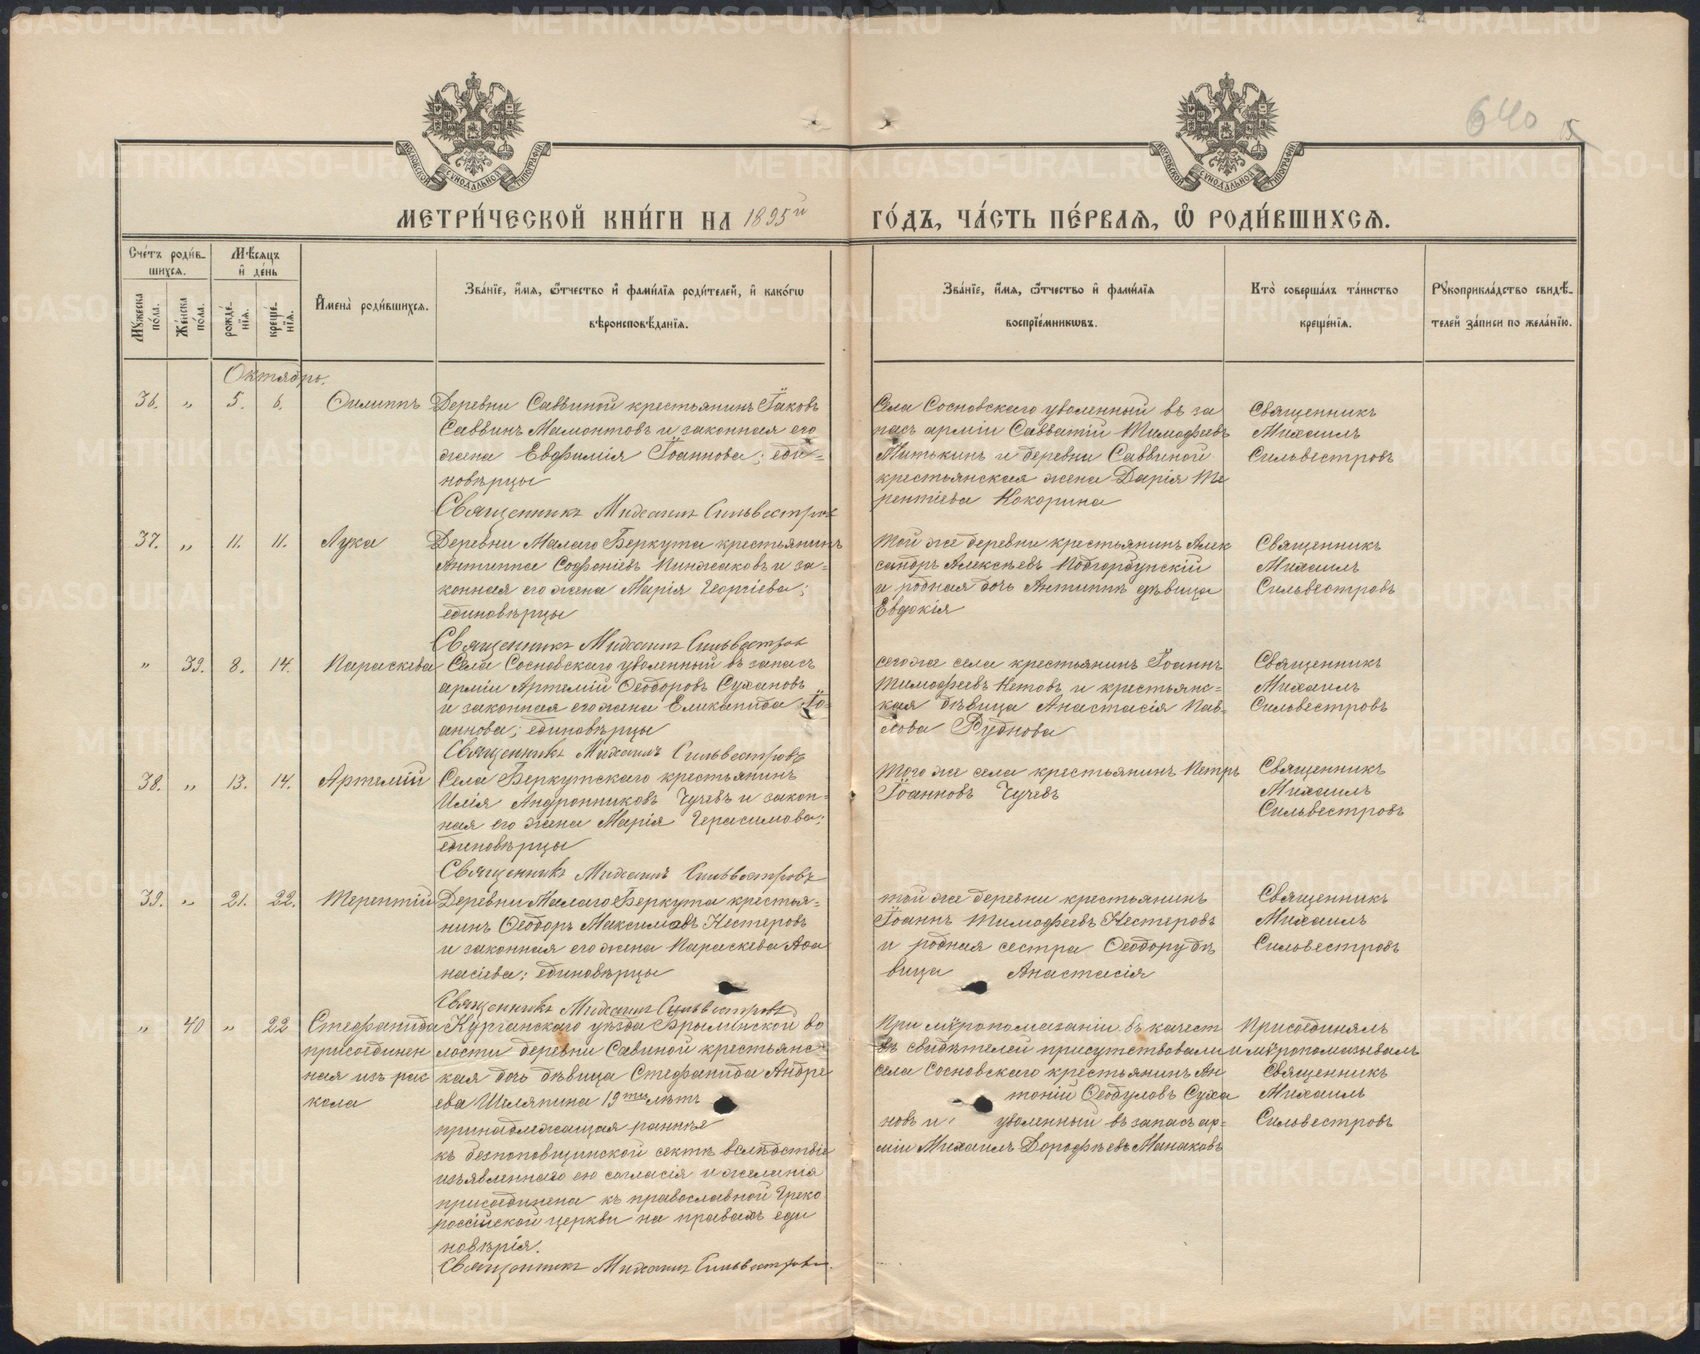 640
15
МЕТРИ́ЧЕСКОЙ КНИ́ГИ НА 1895й ГО́ДЪ, ЧА́СТЬ ПЕ́РВАЯ, Ѡ҆ РОДИ́ВШИХСЯ.
Сче́тъ роди́в-
шихся.
Мꙋ́жеска по́ла.
Же́нска по́ла.
Мѣ́сяцъ
и҆ де́нь
рожде́-
нїя.
креще́-
нїя.
И҆мена̀ роди́вшихся.
Зва́нїе, и҆́мя, ѻ҆́тчество и҆ фами́лїя роди́телей, и҆ како́гѡ
вѣроисповѣ́данїя.
Зва́нїе, и҆́мя, ѻ҆́тчество и҆ фами́лїя
воспрїе́мникѡвъ.
Кто̀ соверша́лъ та́инство
креще́нїя.
Рꙋкоприкла́дство свидѣ́-
телей за́писи по жела́нїю.
Октябрь.
36. „ 5. 6. Филиппъ
Деревни Саввиной крестьянинъ Їаковъ
Саввинъ Мамонтовъ и законная его
жена Евфимія Їоаннова; еди-
новѣрцы
Священникъ Михаилъ Сильвестровъ
Села Сосновскаго уволенный въ за
пасъ арміи Савватій Тимофеевъ
Питькинъ и деревни Саввиной
крестьянская жена Дарія Те
рентіева Кокорина
Священникъ
Михаилъ
Сильвестровъ
37. „ 11. 11. Лука
Деревни Малаго Беркута крестьянинъ
Антиппа Софоніевъ Пинжаковъ и за-
конная его жена Марія Георгіева;
единовѣрцы
Священникъ Михаилъ Сильвестровъ
Той же деревни крестьянинъ Алек
сандръ Алексѣевъ Подгорбунскій
и родная дочь Антиппы дѣвица
Евдокія
Священникъ
Михаилъ
Сильвестровъ
„ 39. 8. 14. Параскева
Села Сосновскаго уволенный въ запасъ
арміи Артемій Ѳеодоровъ Сухановъ
и законная его жена Еликанида Їо-
аннова; единовѣрцы
Священникъ Михаилъ Сильвестровъ
Сего же села крестьянинъ Їоаннъ
Тимофеевъ Кетовъ и крестьянс-
кая дѣвица Анастасія Пав-
лова Руднова
Священникъ
Михаилъ
Сильвестровъ
38. „ 13. 14. Артемій
Села Беркутскаго крестьянинъ
Илія Андронниковъ Чучевъ и закон-
ная его жена Марія Герасимова;
единовѣрцы
Священникъ Михаилъ Сильвестровъ
Того же села крестьянинъ Петръ
Їоанновъ Чучевъ
Священникъ
Михаилъ
Сильвестровъ
39. „ 21. 22. Терентій
Деревни Малаго Беркута крестья-
нинъ Ѳеодоръ Максимовъ Нестеровъ
и законная его жена Параскева Аѳа
насіева; единовѣрцы
Священникъ Михаилъ Сильвестровъ
Той же деревни крестьянинъ
Їоаннъ Тимофеевъ Нестеровъ
и родная сестра Ѳеодору дѣ
вица Анастасія
Священникъ
Михаилъ
Сильвестровъ
„ 40 „ 22 Стефанида
присоединен
ная изъ рас
кола
Курганскаго уѣзда Брылинской во
лости деревни Савиной крестьянс-
кая дочь дѣвица Стефанида Андре
ева Шляпина 19ти лѣтъ
принадлежащая раннѣе
къ безпоповщинской сектѣ вслѣдствіе
изъявленнаго ею согласія и желанія
присоединена къ православной Греко
россійской церкви на правахъ еди
новѣрія.
Священникъ Михаилъ Сильвестровъ.
При мѵропомазаніи въ качест
вѣ свидѣтелей присутствовали
села Сосновскаго крестьянинъ Ан
тоній Ѳеодуловъ Суха
новъ и уволенный въ запасъ ар-
міи Михаилъ Дорофѣевъ Манаковъ
Присоединялъ
и мѵропомазывалъ
Священникъ
Михаилъ
Сильвестровъ